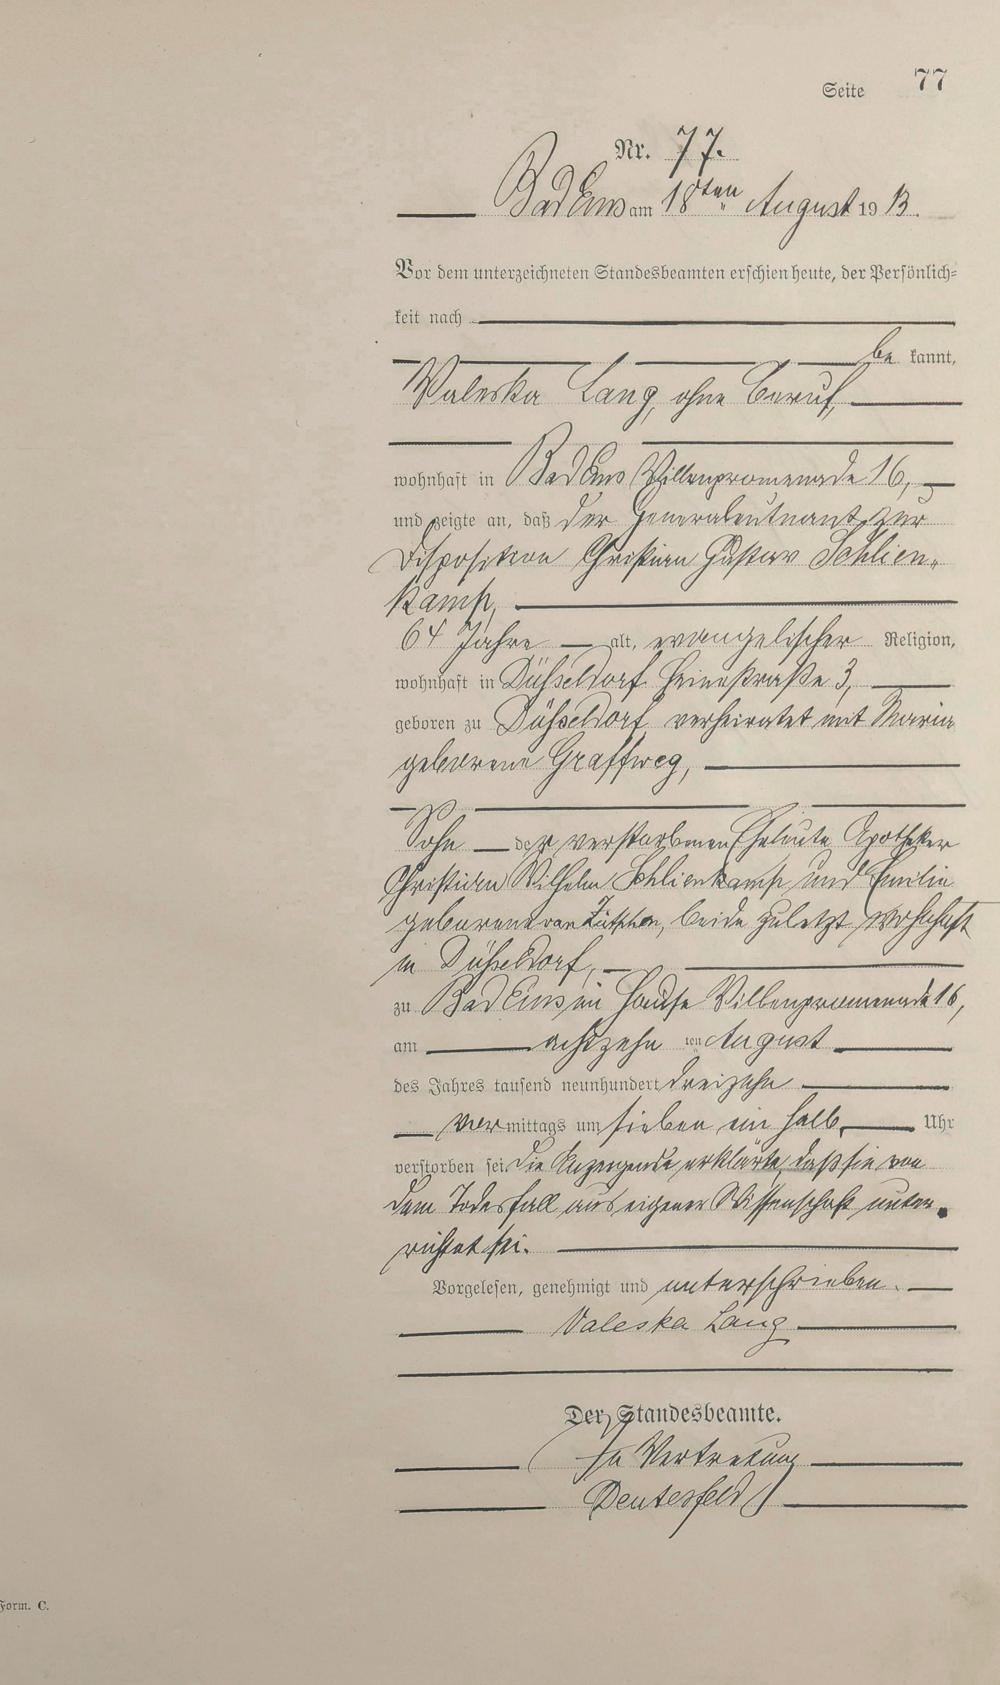 Seite 77
Nr. 77.
Bad Ems am 18ten August 1913.
Vor dem unterzeichneten Standesbeamten erschien heute, der Persönlich=
keit nach
be kannt,
Valeska Lang, ohne Beruf,
wohnhaft in Bad Ems Villenpromenade 16,
und zeigte an, daß der Generalleutnant zur
Disposition Christian Gustav Schlien-
kamp,
64 Jahre alt, evangelischer Religion,
wohnhaft in Düsseldorf Heinestraße 3,
geboren zu Düsseldorf, verheiratet mit Maria
geborene Graffweg,
Sohn der verstorbenen Eheleute Apotheker
Christian Wilhelm Schlienkamp und Emilie
geborene van, beide zuletzt wohnhaft
in Düsseldorf,
zu Bad Ems im Hause Villenpromenade 16,
am achtzehn ten August
des Jahres tausend neunhundert dreizehn
vormittags um sieben ein halb Uhr
verstorben sei. Die Anzeigende erklärte, daß sie von
dem Todesfall aus eigener Wissenschaft unter-
richtet sei.
Vorgelesen, genehmigt und unterschrieben.
Valeska Lang
Der Standesbeamte.
In Vertretung
Form. C.